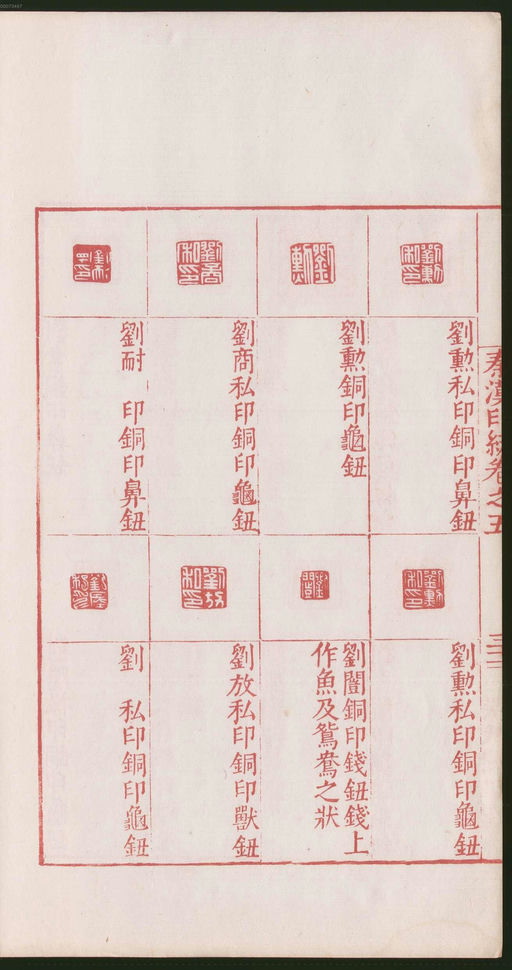 秦漢印統卷之五
劉勲私印銅印鼻鈕
劉勲銅印龜鈕
劉商私印銅印龜鈕
劉耐 印銅印鼻鈕
劉勲私印銅印龜鈕
劉闓銅印錢鈕錢上
作魚及鴛鴦之狀
劉放私印銅印獸鈕
劉 私印銅印龜鈕